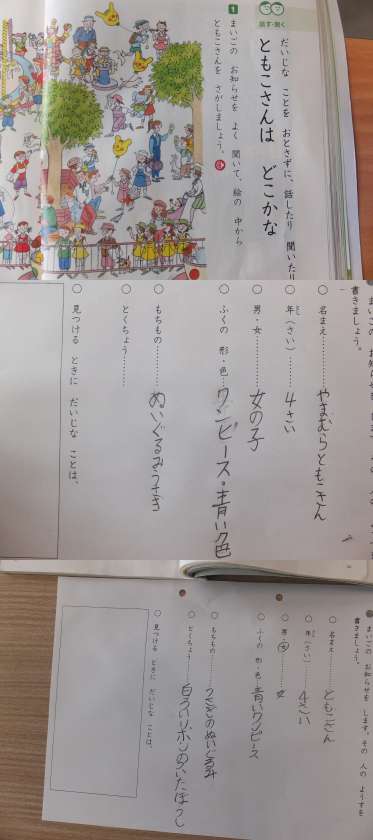 話す・聞く
だいじな ことを おとさずに、話したり 聞いたり
ともこさんは どこかな
1 まいごの お知らせを よく 聞いて、絵の 中から
ともこさんを さがしましょう。
書きましょう。
○ 名まえ………やまむらともこさん
○ 年(さい)………4さい
○ 男・女………女の子
○ ふくの 形・色…ワンピース。青い色
○ もちもの………ぬいぐるみうさぎ
○ とくちょう………
○ 見つける ときに だいじな ことは、
まいごの お知らせを します。その 人の ようすを
書きましょう。
○ 名まえ………ともこさん
○ 年(さい)………4さい
○ 男・女………女
○ ふくの 形・色…青いワンピース
○ もちもの………うさぎのぬいぐるみ
○ とくちょう………白いリボンのついたぼうし
○ 見つける ときに だいじな ことは、